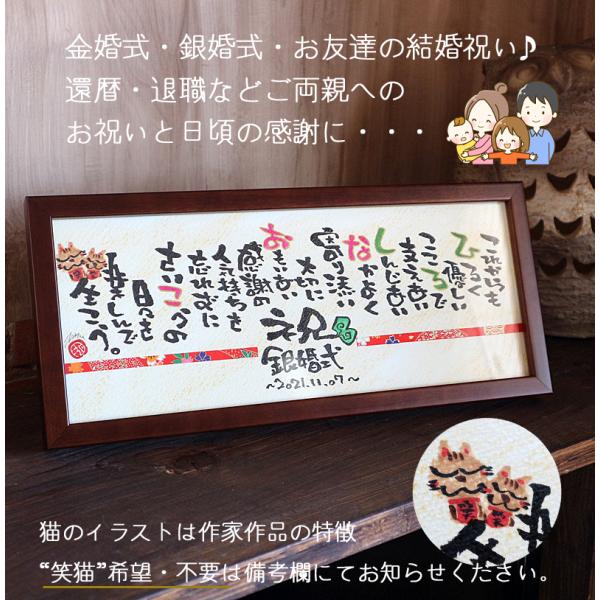 金婚式・銀婚式・お友達の結婚祝い♪
還暦・退職などご両親への
お祝いと日頃の感謝に・・・
これからも
ひろく
優しい
こころで
支えあい
しんじあい
なかよく
寄り添い
大切に
おもいあい
感謝の
気持ちを
忘れずに
さいこうの
日々を
楽しんで
生こう。
祝
銀婚式
～2021.11.07～
猫のイラストは作家作品の特徴
“笑猫”希望・不要は備考欄にてお知らせください。